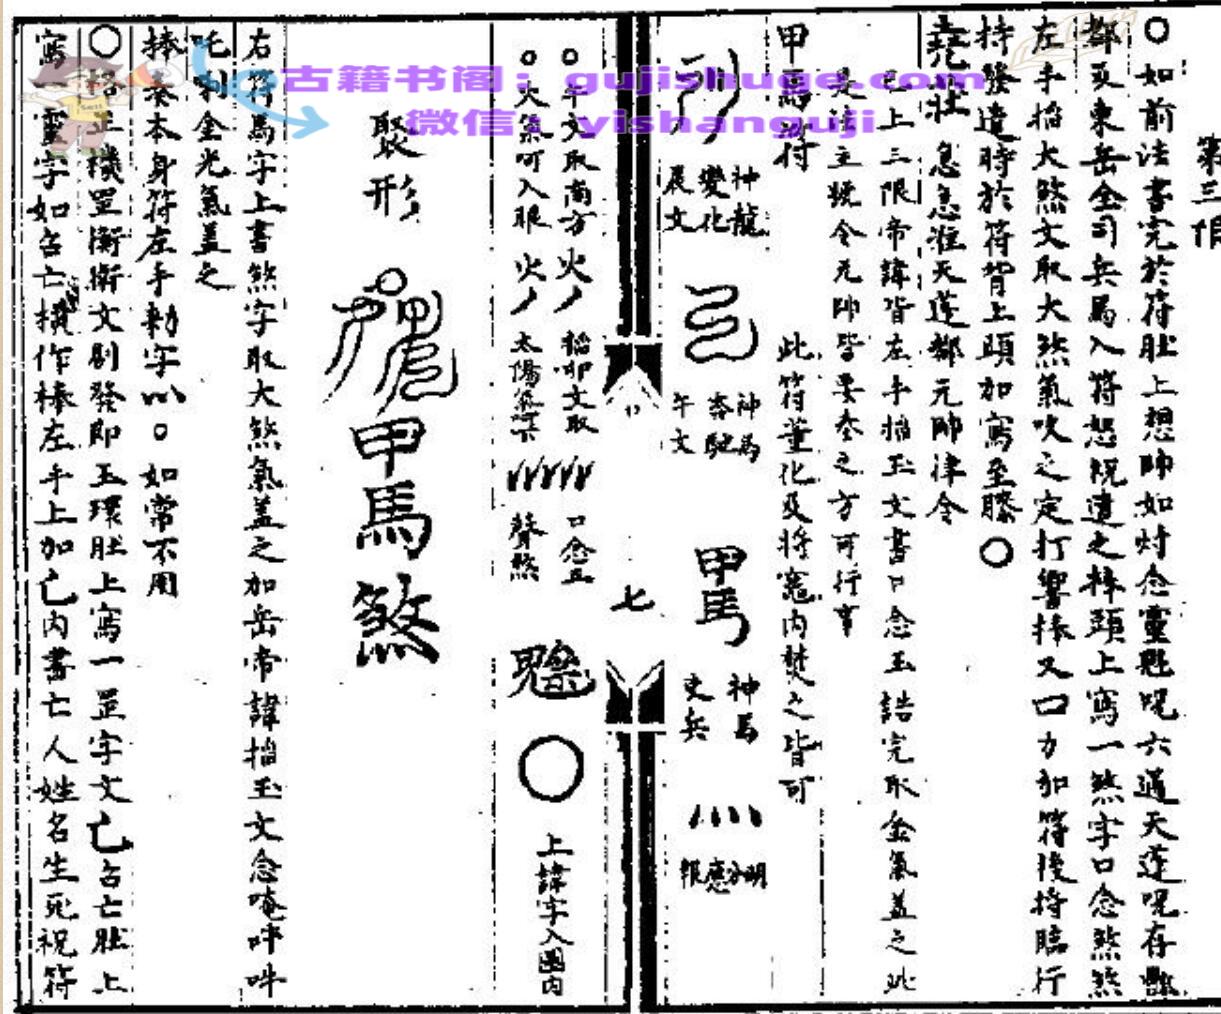 第三
〇如前法書完於符肚上想帥如対念靈魁呪六道天蓬呪存酆
都及東岳全司兵馬入符怒祝遣之棒頭上寫一煞字口念煞煞
左手掐大煞文取大煞氣吹之定打響捧又口力加符後持臨行
持發遣時於符背上頭加寫至膝〇
急急准天蓬都元帥津令
已上三限帝諱皆左手掐玉文書口念玉誥完取金氣盖之此
是法主號令元帥皆要本之方可行事
此符董化及將竈内焚之皆可
甲馬符
神龍
變化
辰文
神馬
奔馳
午文
甲馬
神馬
吏兵
明分
應報
七
午文取南方火
掐卯文取
口念五
大氣呵入眼火
太陽氣
聲煞
上諱字入圈内
聚形
甲馬煞
右符馬字上書煞字取大煞氣盖之加岳帝諱掐玉文念唵吽吽
吒唎金光氣盖之
捧奏本身符左手勑字以〇如常不用
〇 罡衝衝文剔發即玉環肚上寫一罡字文亡占亡肚上
寫一靈字如占亡横作棒左手上加亡内書亡人姓名生死祝符
古籍书阁：gujishuge.com
微信：yishanguji